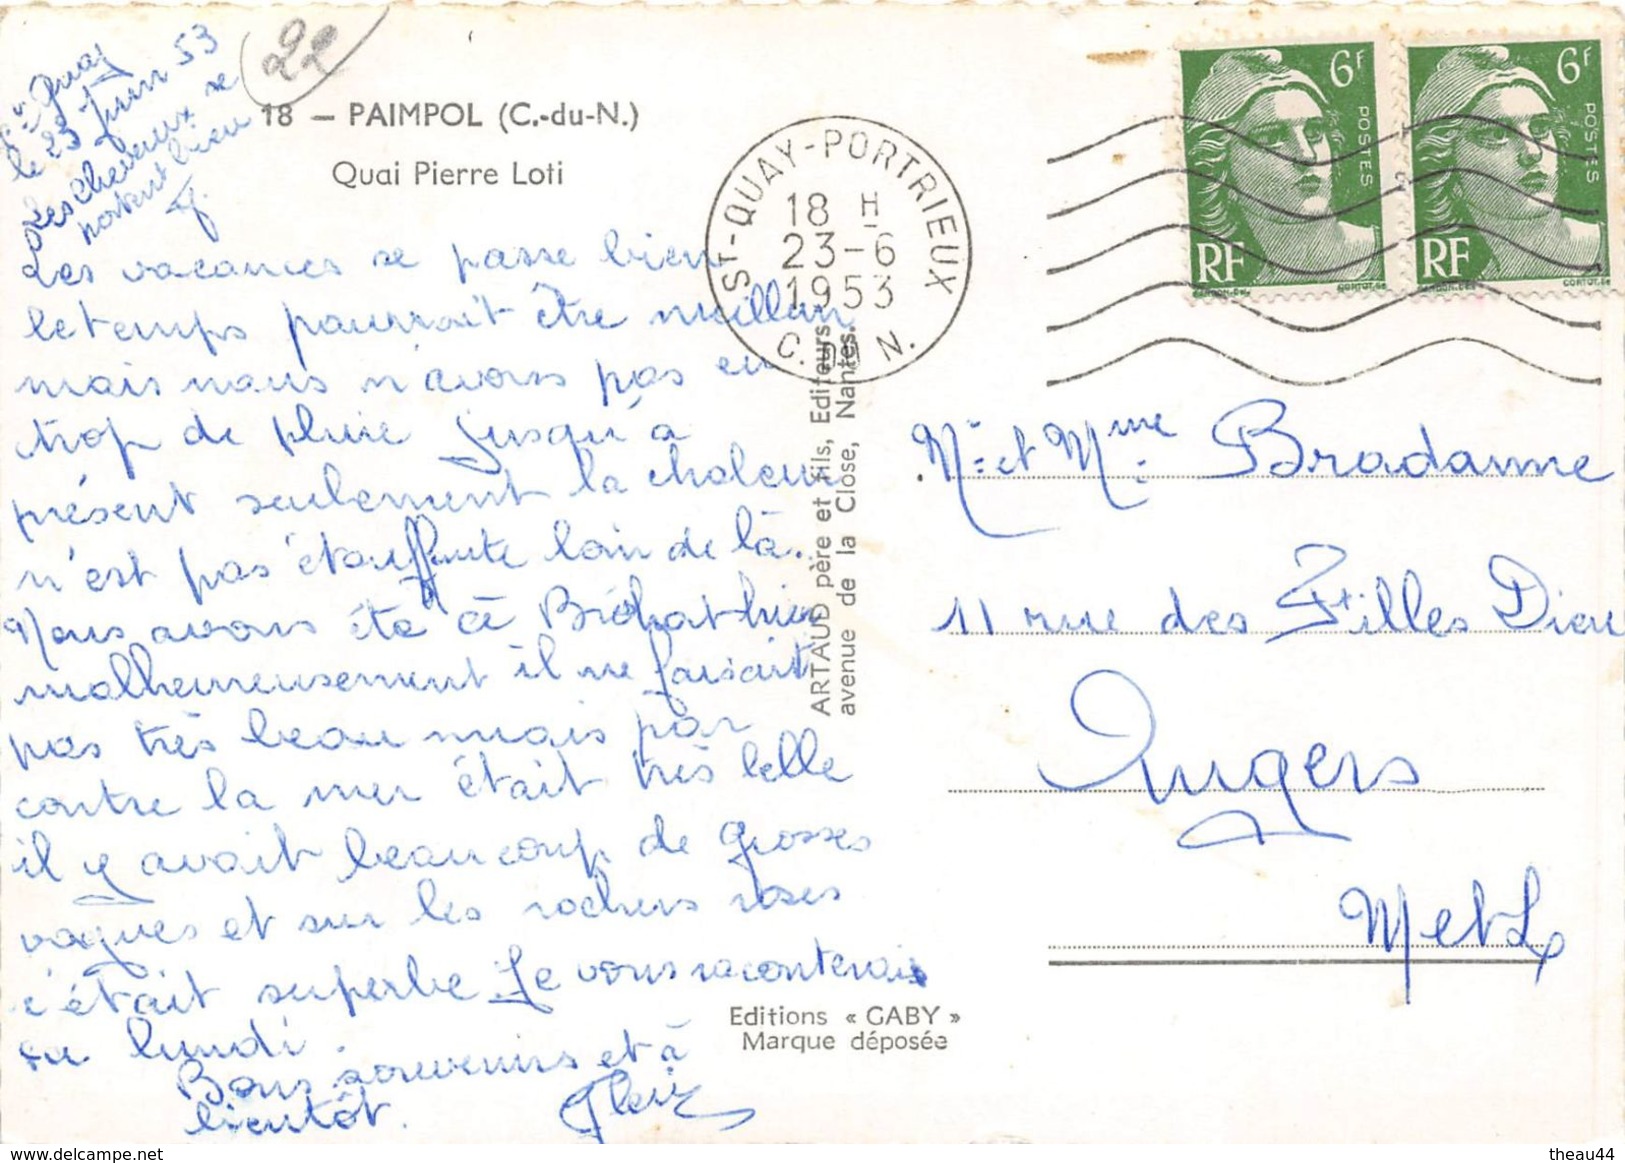 22
St Quay
le 23 Juin 53
Les cheveux se
portent bien
18 — PAIMPOL (C.-du-N.)
Quai Pierre Loti
Les vacances se passe bien
le temps pourrait être meilleur
mais nous n'avons pas eu
trop de pluie jusqu'à
présent seulement la chaleur
n'est pas étouffante loin de là.
Nous avons été à Bréhat hier
malheureusement il ne faisait
pas très beau mais par
contre la mer était très belle
il y avait beaucoup de grosses
vagues et sur les rochers roses
c'était superbe Je vous raconterais
ça lundi.
Bons souvenirs et à
bientôt.
ST-QUAY-PORTRIEUX
18 H
23-6
1953
C. DU N.
6F
POSTES
RF
GANDON.DEL
CORTOT.SC
6F
POSTES
RF
GANDON.DEL
CORTOT.SC
ARTAUD père et fils, Editeurs
avenue de la Close, Nantes.
Mr et Mme Bradanne
11 rue des Filles Dieu
Angers
M et L
Editions « GABY »
Marque déposée
theau44